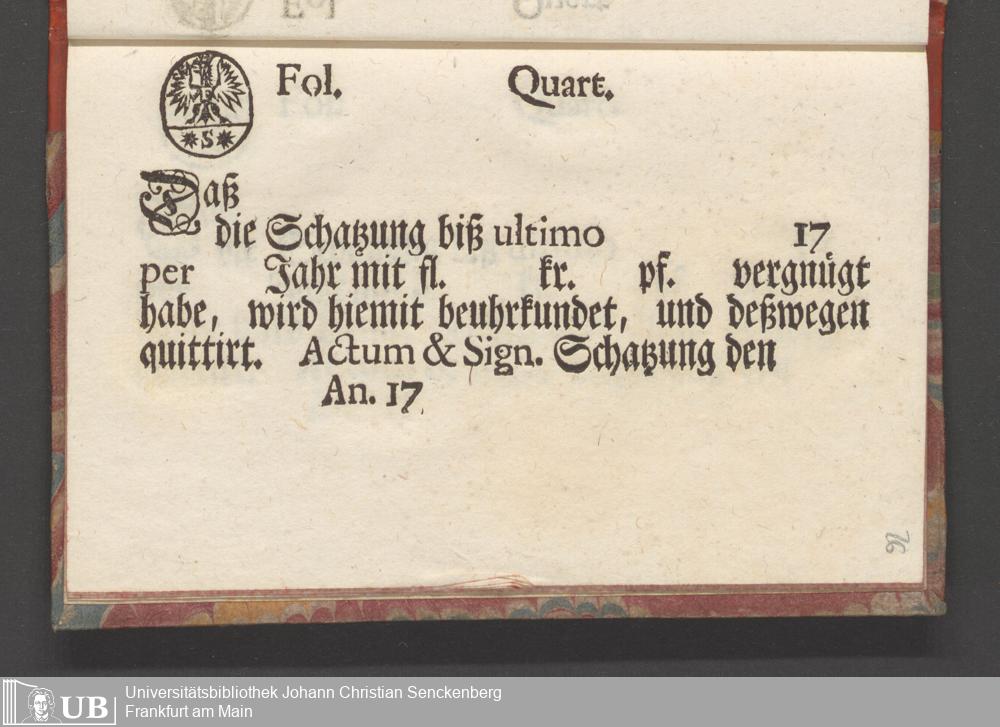 Fol. Quart.
* S *
Daß
die Schatzung biß ultimo 17
per Jahr mit fl. kr. pf. vergnügt
habe, wird hiemit beuhrkundet, und deßwegen
quittirt. Actum & Sign. Schatzung den
An. 17
76
UB
Universitätsbibliothek Johann Christian Senckenberg
Frankfurt am Main